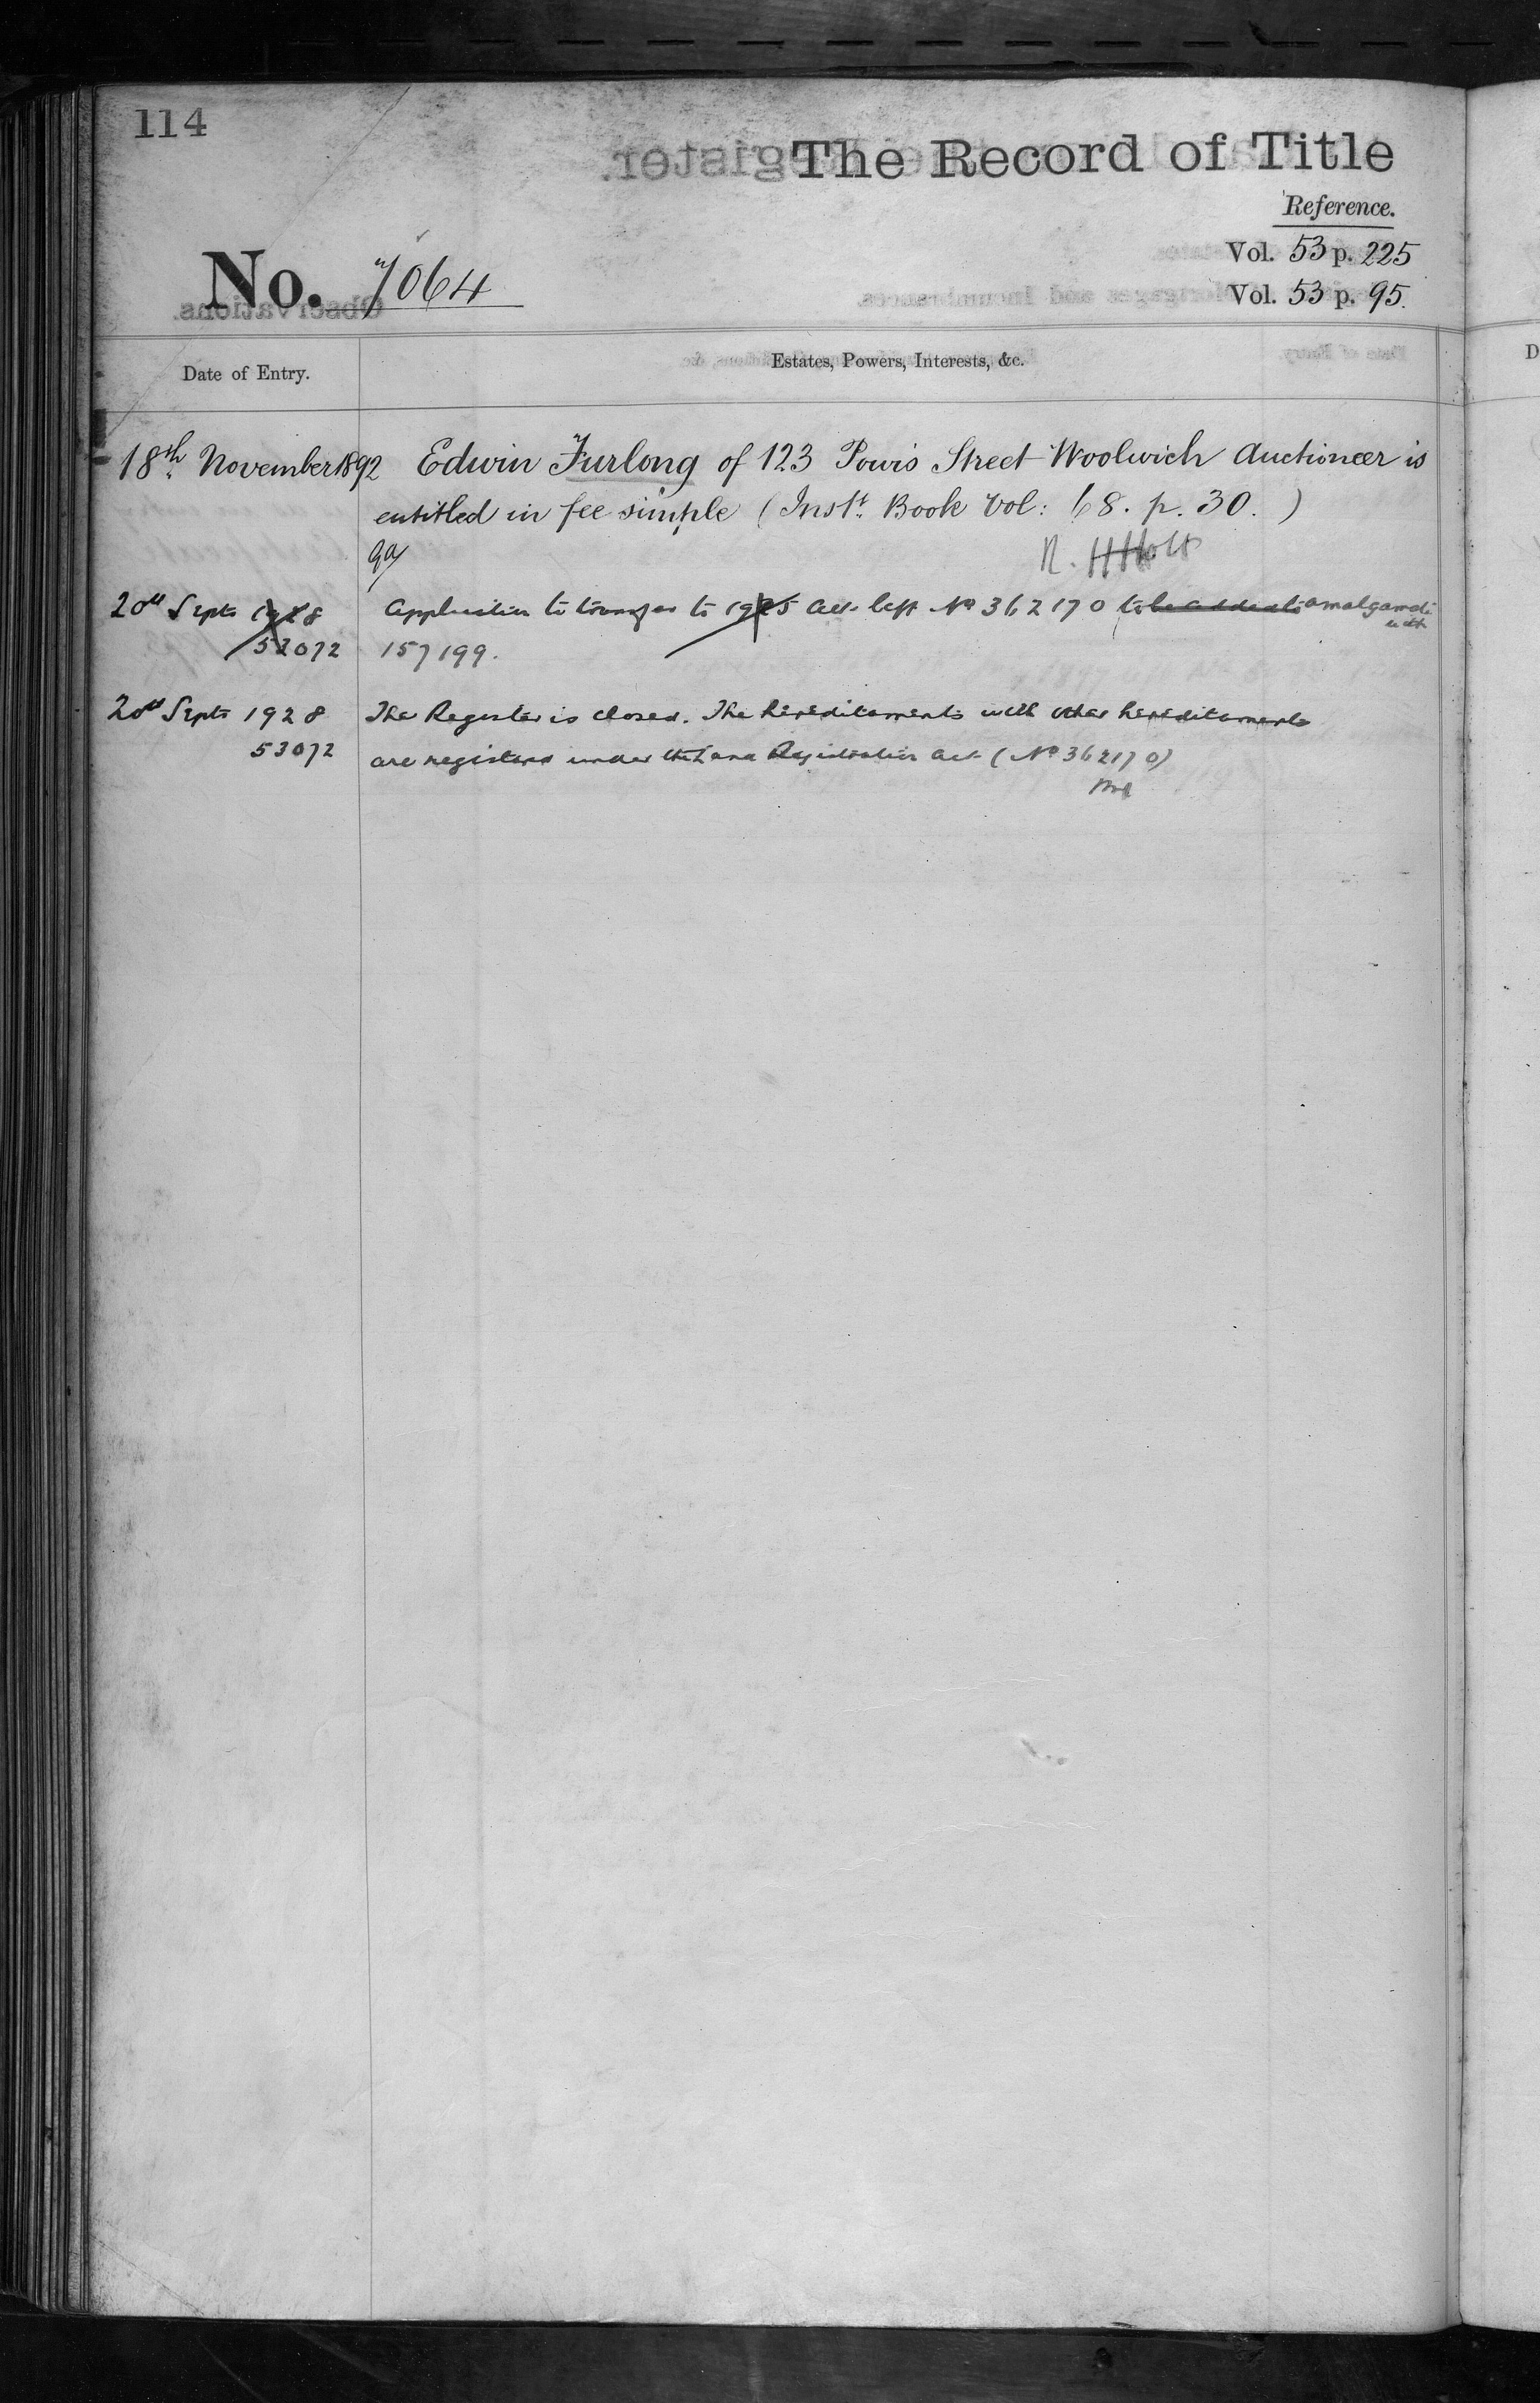 114
The Record of Title
Reference.
Vol. 53 p. 225
No. 7064
Vol. 53 p. 95.
Date of Entry.
Estates, Powers, Interests, &c.
18th November 1892 Edwin Furlong of 123 Powis Street Woolwich Auctioneer is
entitled in fee simple (Inst. Book Vol: 68. p. 30.)
R. H Holt
20th Septr 1928 Application to transfer to 1925 Act left No 362170 to be added to amalgamate
with
53072 157199.
20th Septr 1928 The Register is closed. The hereditaments with other hereditaments
53072 are registered under the Land Registration Act (No 362170)